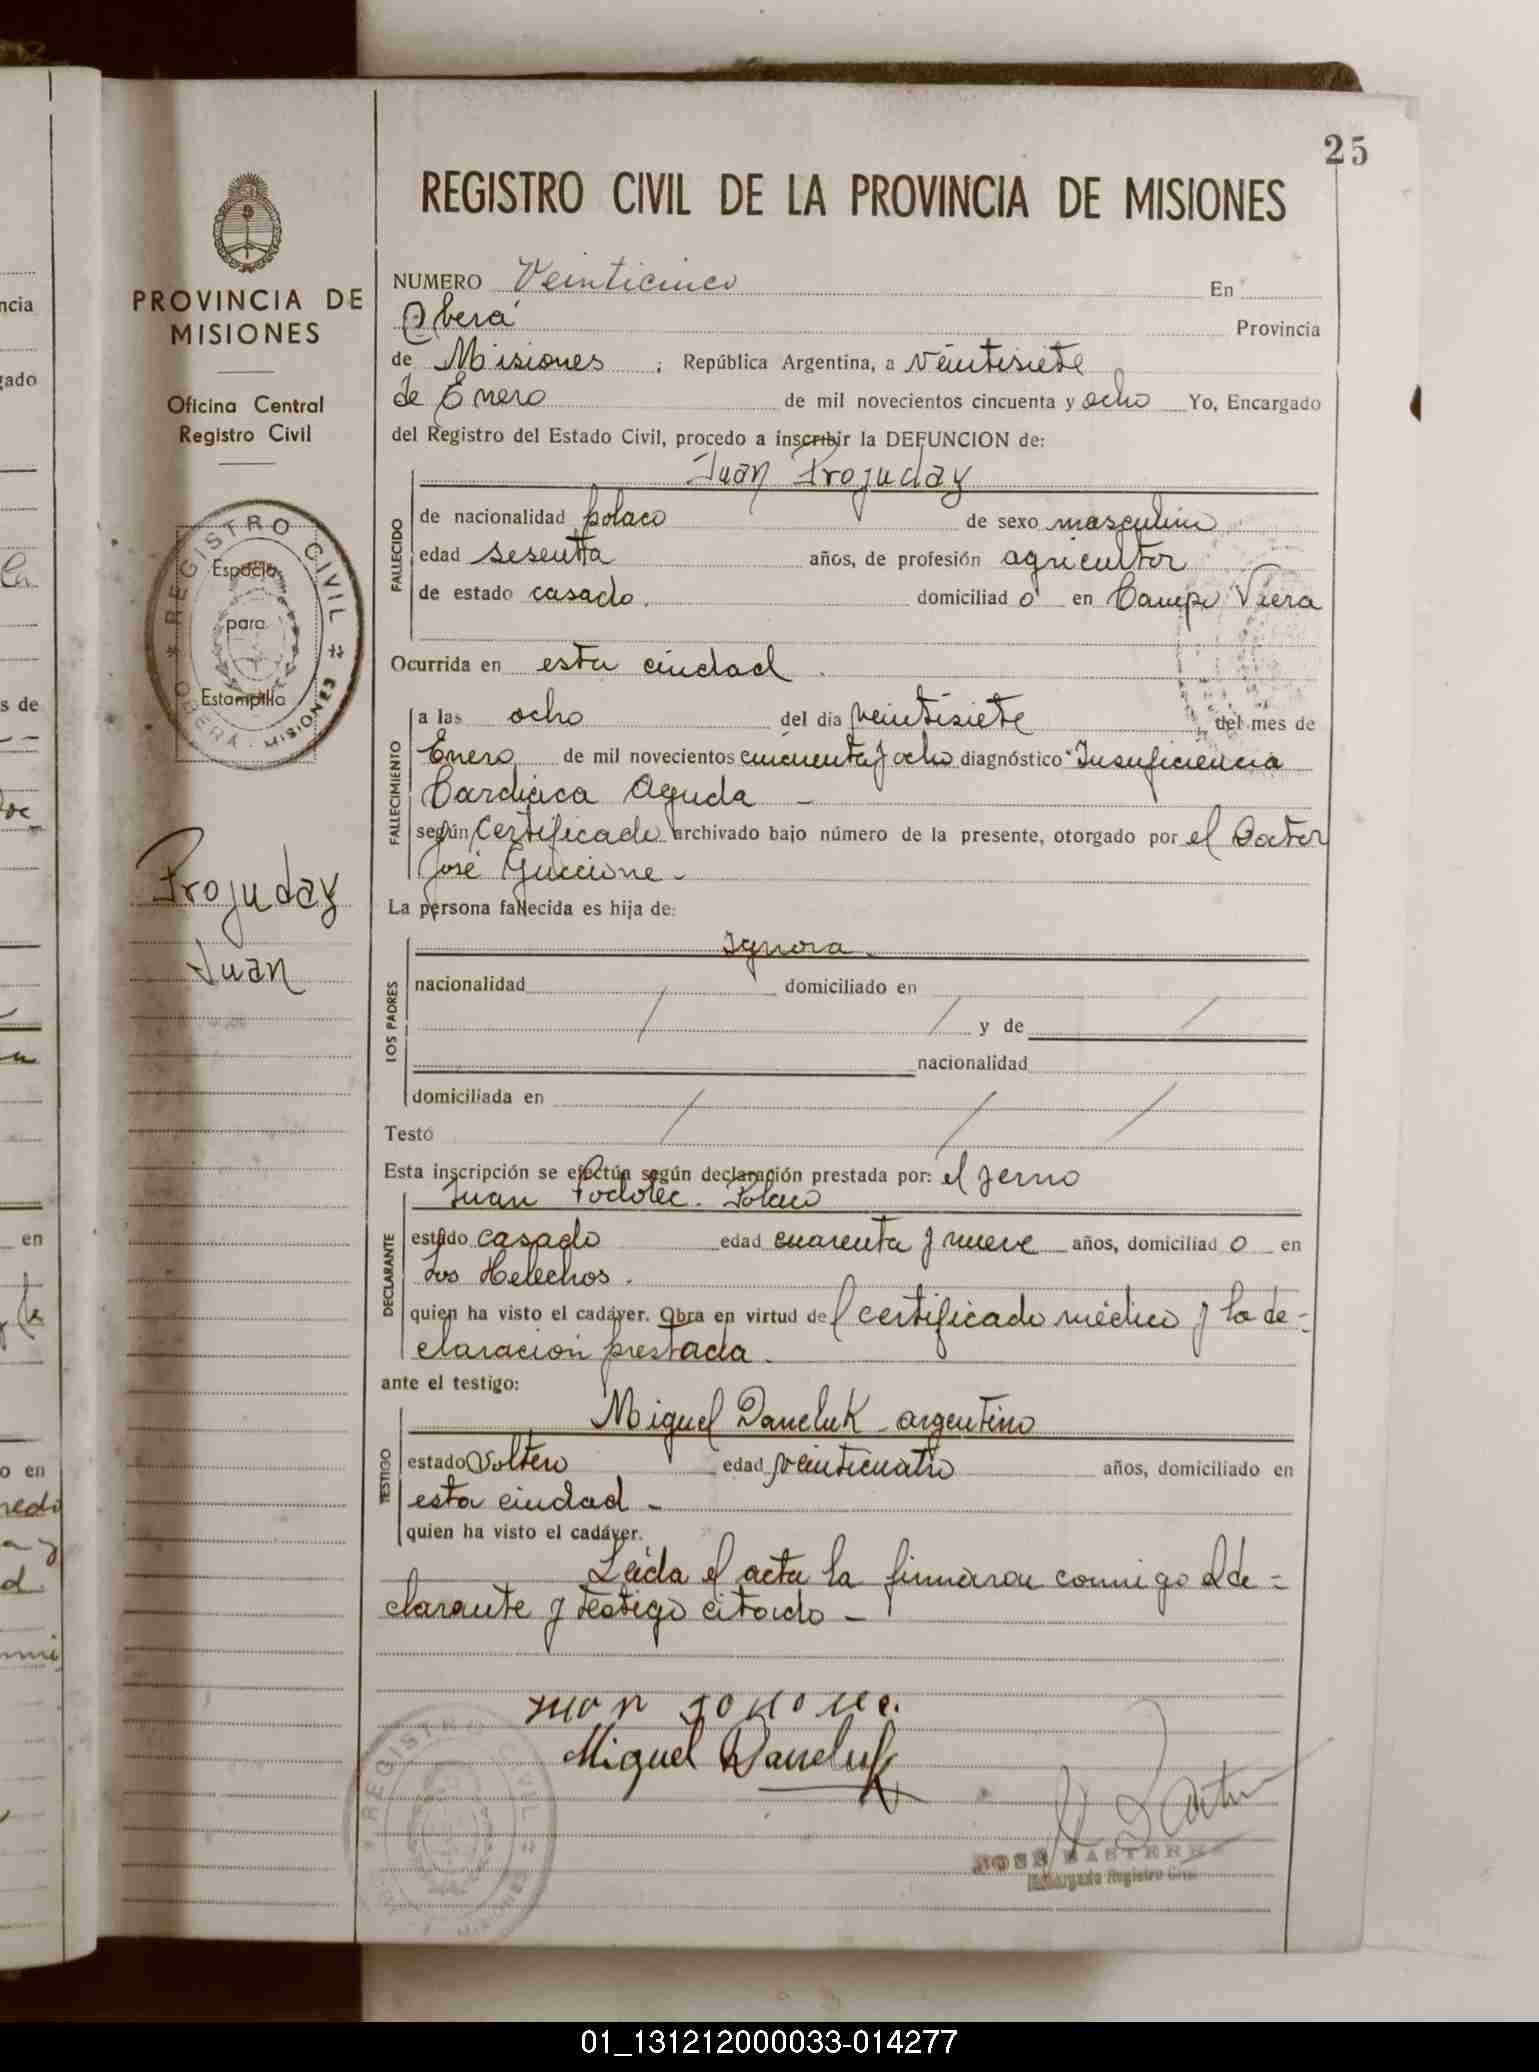 25
REGISTRO CIVIL DE LA PROVINCIA DE MISIONES
PROVINCIA DE
MISIONES
Oficina Central
Registro Civil
REGISTRO CIVIL
OBERA - MISIONES
Espacio
para
Estampilla
Projuday
Juan
NUMERO Veinticinco En
Oberá Provincia
de Misiones ; República Argentina, a veintisiete
de Enero de mil novecientos cincuenta y ocho Yo, Encargado
del Registro del Estado Civil, procedo a inscribir la DEFUNCION de:
Juan Projuday
FALLECIDO
de nacionalidad polaco de sexo masculino
edad sesenta años, de profesión agricultor
de estado casado. domiciliad o en Campo Viera
Ocurrida en esta ciudad.
FALLECIMIENTO
a las ocho del día veintisiete del mes de
Enero de mil novecientos cincuenta y ocho diagnóstico Insuficiencia
Cardiaca Aguda -
según certificado archivado bajo número de la presente, otorgado por el Doctor
José Guccione.
La persona fallecida es hija de:
LOS PADRES
Ignora.
nacionalidad domiciliado en
y de
nacionalidad
domiciliada en
Testó
Esta inscripción se efectúa según declaración prestada por: el yerno
DECLARANTE
Juan Podolec. Polaco
estado casado edad cuarenta y nueve años, domiciliad o en
Los Helechos.
quien ha visto el cadáver. Obra en virtud del certificado médico y la de=
claración prestada.
ante el testigo:
TESTIGO
Miguel Daneluk - argentino
estado soltero edad veinticuatro años, domiciliado en
esta ciudad -
quien ha visto el cadáver.
Leída el acta la firmaron conmigo el de=
clarante y testigo citado -
Miguel Daneluk
REGISTRO CIVIL
Encargado Registro Civil
01_131212000033-014277